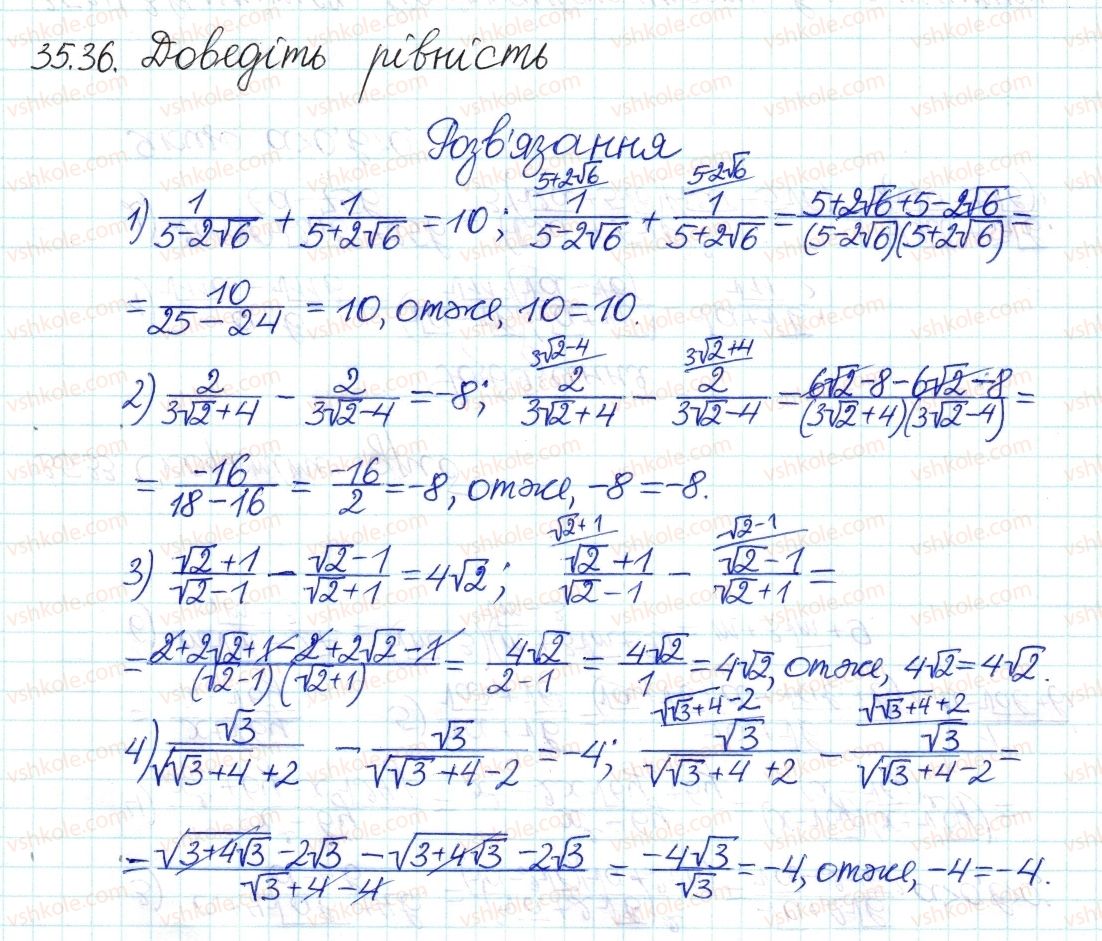 35.36. Доведіть рівність
Розв'язання
1) 1/(5-2√6) + 1/(5+2√6) = 10; (5+2√6/ 1)/(5-2√6) + (5-2√6/ 1)/(5+2√6) = (5+2√6+5-2√6)/((5-2√6)(5+2√6)) =
= 10/(25-24) = 10, отже, 10=10.
2) 2/(3√2+4) - 2/(3√2-4) = -8; (3√2-4/ 2)/(3√2+4) - (3√2+4/ 2)/(3√2-4) = (6√2-8-6√2-8)/((3√2+4)(3√2-4)) =
= -16/(18-16) = -16/2 = -8, отже, -8=-8.
3) (√2+1)/(√2-1) - (√2-1)/(√2+1) = 4√2; (√2+1/ √2+1)/(√2-1) - (√2-1/ √2-1)/(√2+1) =
= (2+2√2+1-2+2√2-1)/((√2-1)(√2+1)) = 4√2/(2-1) = 4√2/1 = 4√2, отже, 4√2=4√2.
4) √3/(√(√3+4)+2) - √3/(√(√3+4)-2) = -4; (√(√3+4)-2/ √3)/(√(√3+4)+2) - (√(√3+4)+2/ √3)/(√(√3+4)-2) =
= (√(3+4√3)-2√3-√(3+4√3)-2√3)/(√3+4-4) = -4√3/√3 = -4, отже, -4=-4.